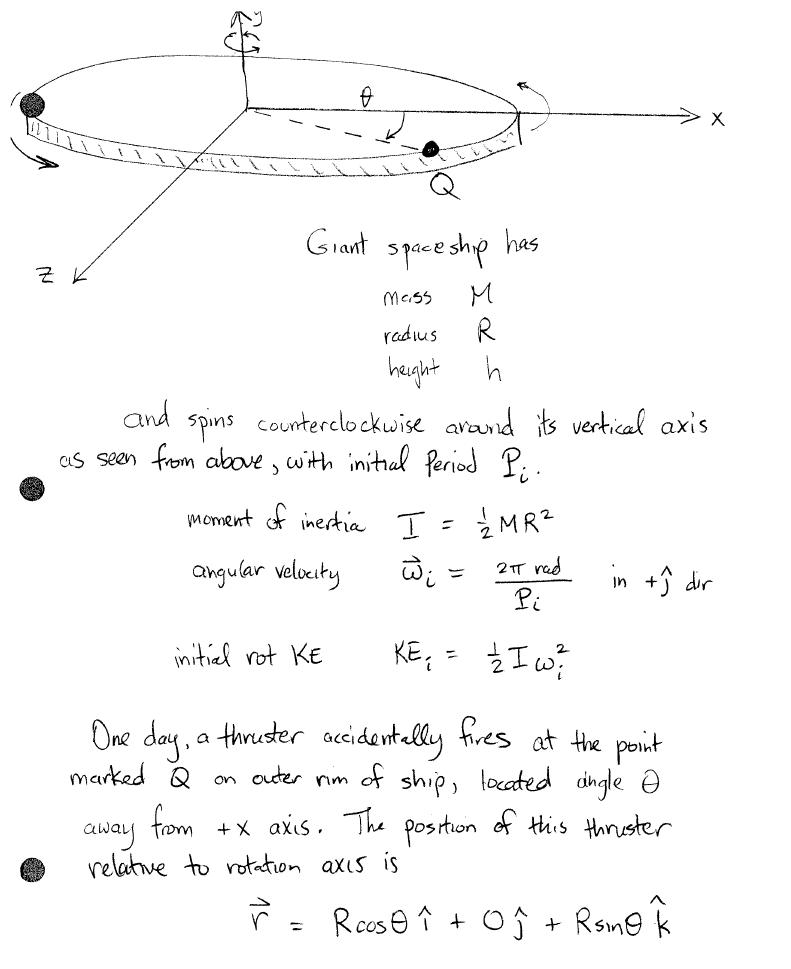 y
θ
x
Q
z
Giant spaceship has
mass M
radius R
height h
and spins counterclockwise around its vertical axis
as seen from above, with initial Period Pᵢ.
moment of inertia I = ½ MR²
angular velocity ω⃗ᵢ = 2π rad / Pᵢ in +ĵ dir
initial rot KE KEᵢ = ½ I ωᵢ²
One day, a thruster accidentally fires at the point
marked Q on outer rim of ship, located angle θ
away from +x axis. The position of this thruster
relative to rotation axis is
r⃗ = Rcosθ î + 0 ĵ + Rsinθ k̂